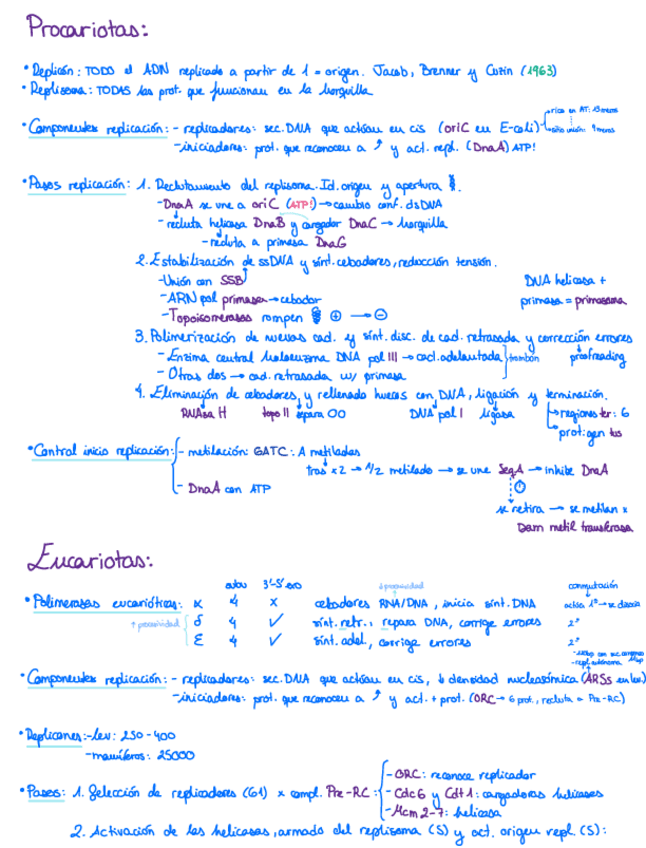 Procariotas:
• Replicón: TODO el ADN replicado a partir de 1 = origen. Jacob, Brenner y Cuzin (1963)
• Replisoma: TODAS las prot. que funcionan en la horquilla
rica en AT: 13 meros
• Componentes replicación: - replicadores: sec. DNA que actúan en cis (oriC en E-coli)
sitio unión: 9 meros
- iniciadores: prot. que reconocen a ↗ y act. repl. (DnaA) ATP!
• Pasos replicación: 1. Reclutamiento del replisoma. Id. origen y apertura
- DnaA se une a oriC (ATP!) → cambio conf. dsDNA
- recluta helicasa DnaB y cargador DnaC → horquilla
- recluta a primasa DnaG
2. Estabilización de ssDNA y sínt. cebadores, reducción tensión.
- Unión con SSB
DNA helicasa +
- ARN pol primasa → cebador
primasa = primosoma
- Topoisomerasas rompen ⊕ → ⊖
3. Polimerización de nuevas cad. y sínt. disc. de cad. retrasada y corrección errores
- Enzima central holoenzima DNA pol III → cad. adelantada } trombón
proofreading
- Otras dos → cad. retrasada w/ primasa
4. Eliminación de cebadores, y rellenado huecos con DNA, ligación y terminación.
RNAsa H topo II separa OO DNA pol I ligasa → regiones ter: 6
→ prot: gen tus
• Control inicio replicación: - metilación: GATC: A metiladas
tras x2 → 1/2 metilado → se une SeqA → inhibe DnaA
- DnaA con ATP
se retira → se metilan x
Dam metil transferasa
Eucariotas:
subu 3'-5' exo ↓ procesividad conmutación
• Polimerasas eucarióticas: α 4 x cebadores RNA/DNA, inicia sínt. DNA actúa 1º → se disocia
↑ procesividad
δ 4 ✓ sínt. retr., repara DNA, corrige errores 2º
ε 4 ✓ sínt. adel., corrige errores 2º
- repl. autónoma
• Componentes replicación: - replicadores: sec. DNA que actúan en cis, ↓ densidad nucleosómica (ARSs en lev)
- iniciadores: prot. que reconocen a ↗ y act. + prot. (ORC → 6 prot., recluta a Pre-RC)
• Replicones: - lev: 250-400
- mamíferos: 25000
• Pasos: 1. Selección de replicadores (G1) x compl. Pre-RC:
- ORC: reconoce replicador
- Cdc6 y Cdt1: cargadoras helicasas
- Mcm 2-7: helicasa
2. Activación de las helicasas, armado del replisoma (S) y act. origen repl. (S):